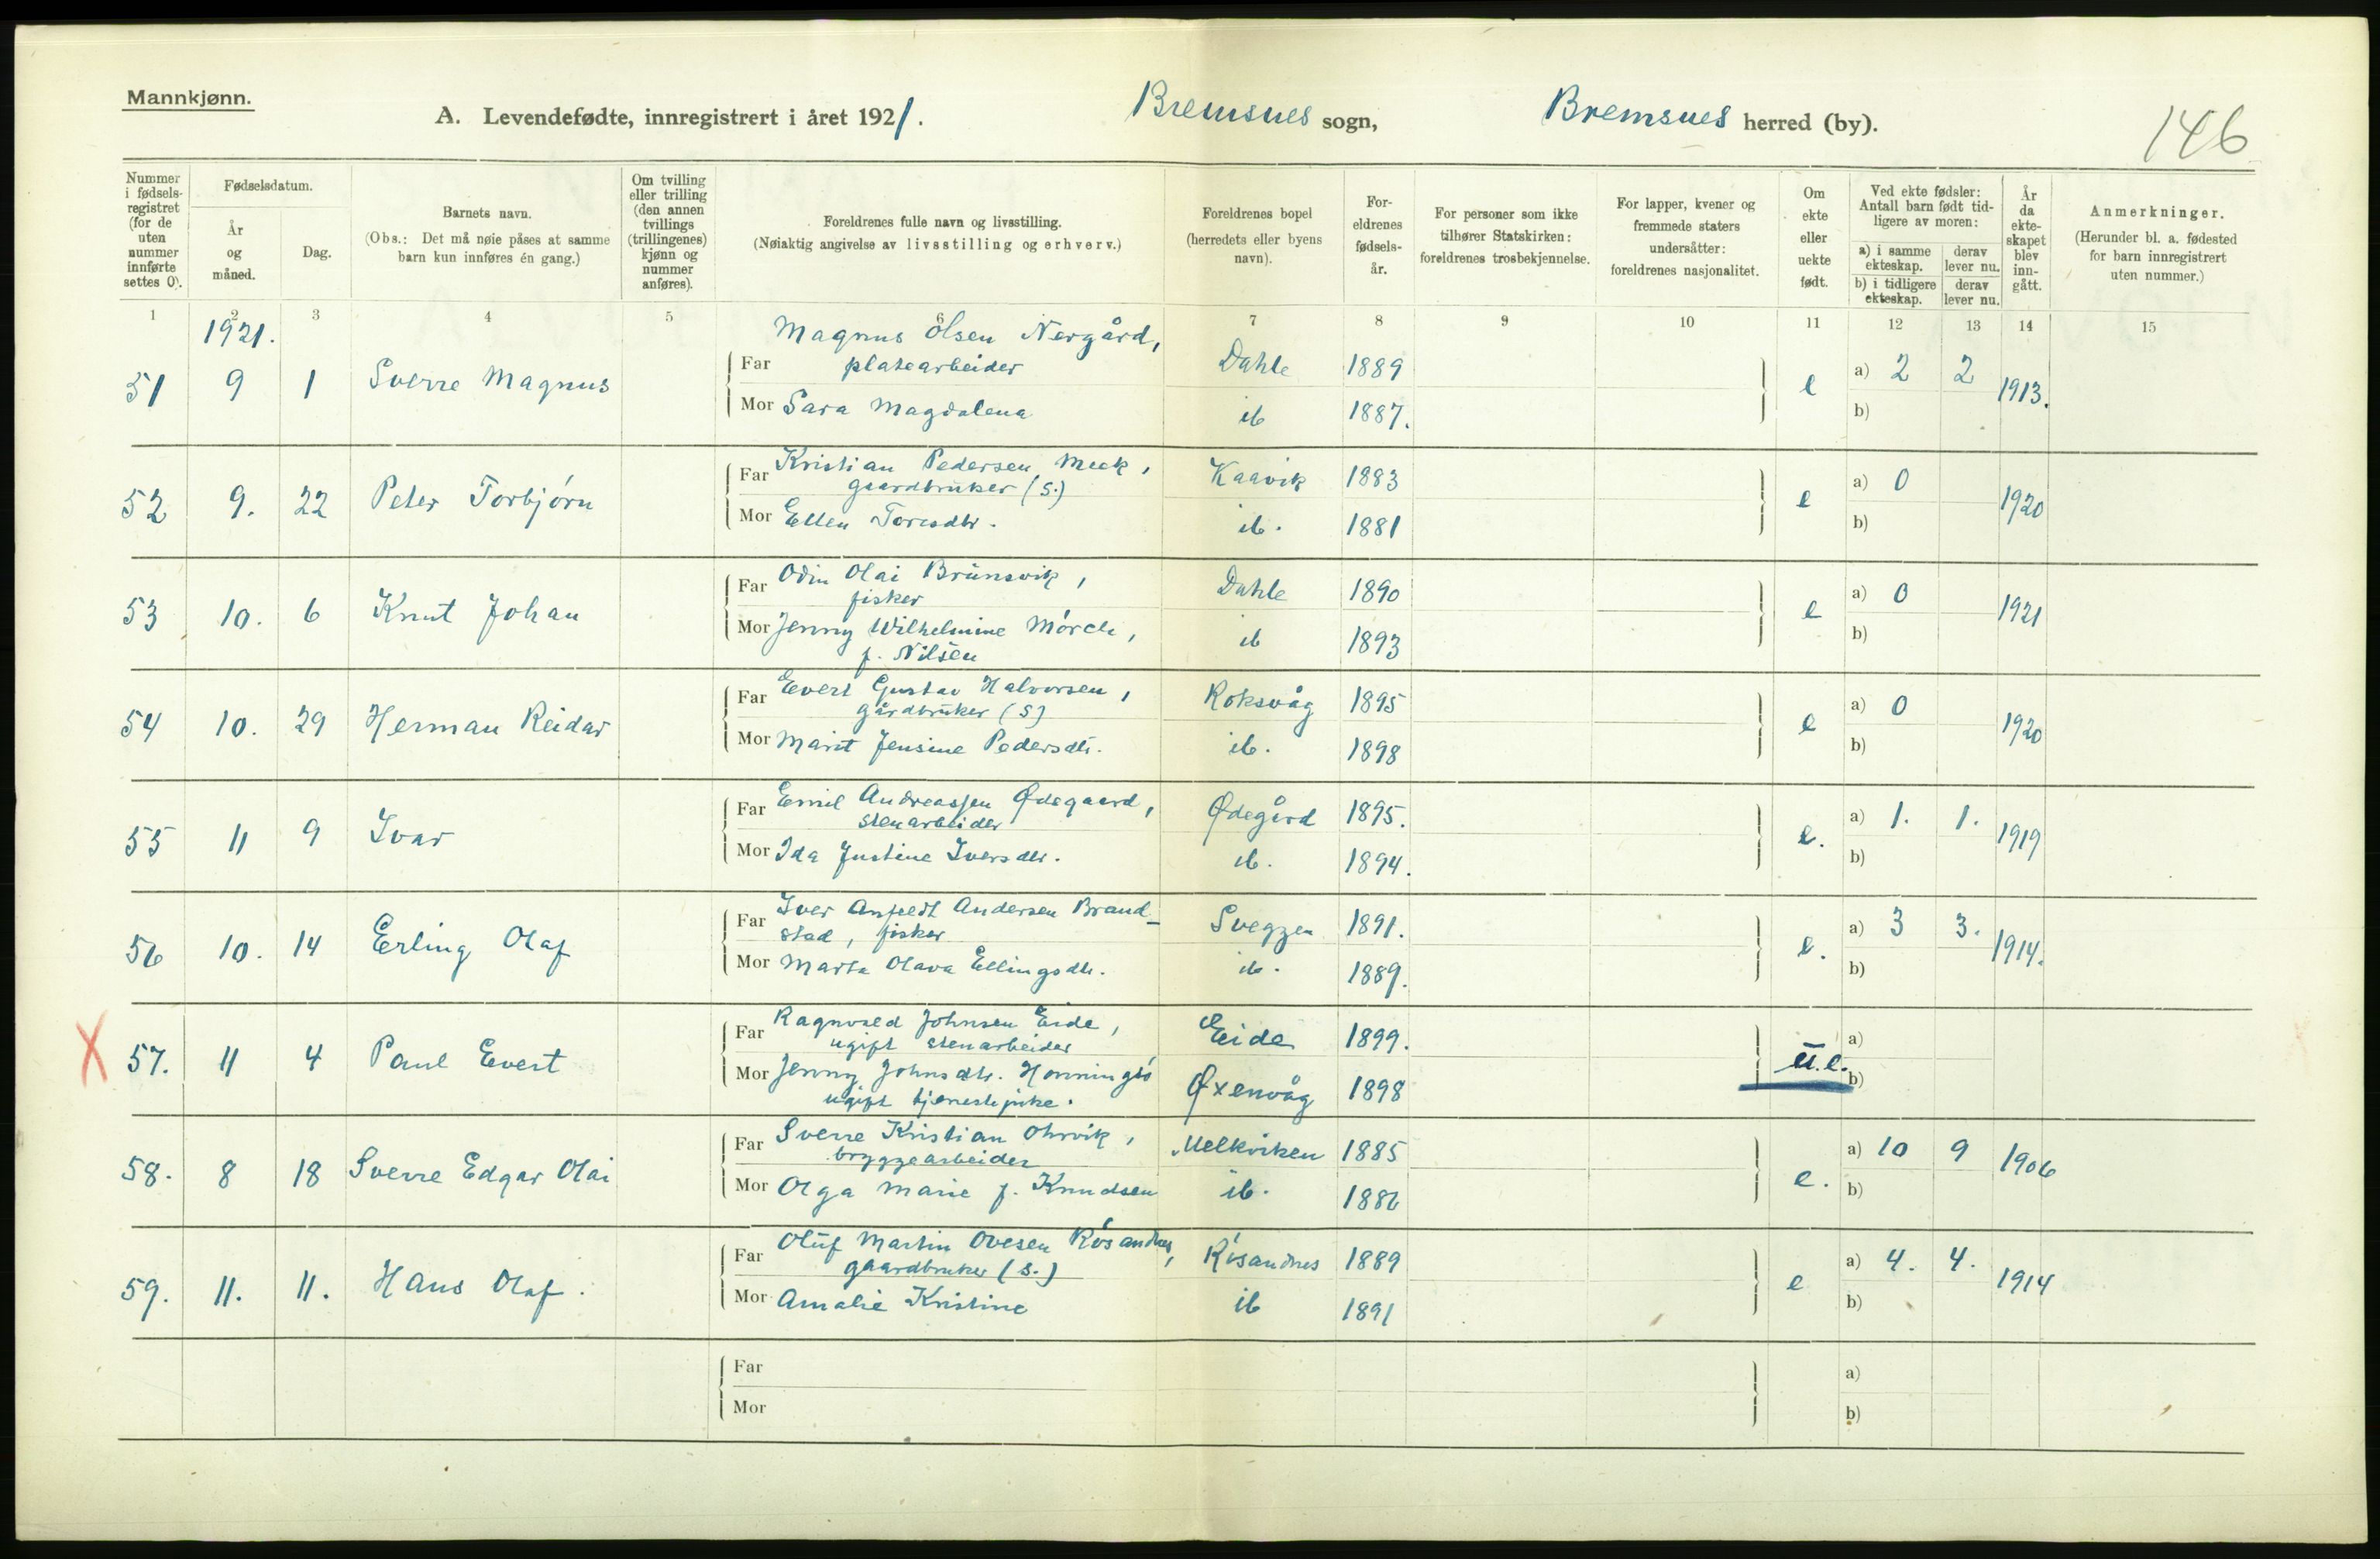 Mannkjønn.
A. Levendefødte, innregistrert i året 1921. Bremsnes sogn, Bremsnes herred (by).
146
Nummer i fødsels-registret (for de uten nummer innførte settes 0).
Fødselsdatum.
År og måned.
Dag.
Barnets navn.
(Obs.: Det må nøie påses at samme barn kun innføres én gang.)
Om tvilling eller trilling (den annen tvillings (trillingenes) kjønn og nummer anføres).
Foreldrenes fulle navn og livsstilling.
(Nøiaktig angivelse av livsstilling og erhverv.)
Foreldrenes bopel (herredets eller byens navn).
For-eldrenes fødsels-år.
For personer som ikke tilhører Statskirken: foreldrenes trosbekjennelse.
For lapper, kvener og fremmede staters undersåtter: foreldrenes nasjonalitet.
Om ekte eller uekte født.
Ved ekte fødsler: Antall barn født tid-ligere av moren:
a) i samme ekteskap. derav lever nu.
b) i tidligere ekteskap. derav lever nu.
År da ekte-skapet blev inn-gått.
Anmerkninger.
(Herunder bl. a. fødested for barn innregistrert uten nummer.)
1 2 3 4 5 6 7 8 9 10 11 12 13 14 15
1921.
Magnus Olsen Nergård,
51 9 1 Sverre Magnus Far platearbeider Dahle 1889 e a) 2 2 1913.
Mor Sara Magdalena ib 1887. b)
Far Kristian Pedersen Meek, Kaavik 1883
gaardbruker (S.)
52 9. 22 Peter Torbjørn e a) 0 1920
Mor Ellen Toresdtr. ib. 1881 b)
Far Odin Olai Brunsvik, Dahle 1890
fisker
53 10. 6 Knut Johan e a) 0 1921
Mor Jenny Wilhelmine Mørch, ib 1893 b)
f. Nilsen
Far Evert Gustav Halvorsen, Roksvåg 1895
gårdbruker (S)
54 10. 29 Herman Reidar e a) 0 1920
Mor Marit Jensine Pedersdtr. ib. 1898 b)
Far Emil Andreassen Ødegaard, Ødegård 1895.
stenarbeider
55 11 9 Ivar e. a) 1. 1. 1919
Mor Ida Justine Iversdtr. ib. 1894. b)
Far Iver Anfeldt Andersen Brand- Sveggen 1891.
stad, fisker
56 10. 14 Erling Olaf e. a) 3 3. 1914.
Mor Marta Olava Ellingsdtr. ib. 1889. b)
Far Ragnvald Johnsen Eide, Eide 1899.
ugift stenarbeider
X 57. 11 4 Paul Evert u.e. a)
Mor Jenny Johnsdtr. Honningsø Øxenvåg 1898 b)
ugift tjenestepike.
Far Sverre Kristian Ohrvik, Melkviken 1885
bryggearbeider
58. 8 18 Sverre Edgar Olai e. a) 10 9 1906
Mor Olga Marie f. Knudsen ib. 1886 b)
Far Oluf Martin Ovesen Røsandnes, Røsandnes 1889
gaardbruker (S.)
59. 11. 11. Hans Olaf. e a) 4. 4. 1914
Mor Amalie Kristine ib 1891 b)
Far a)
Mor b)